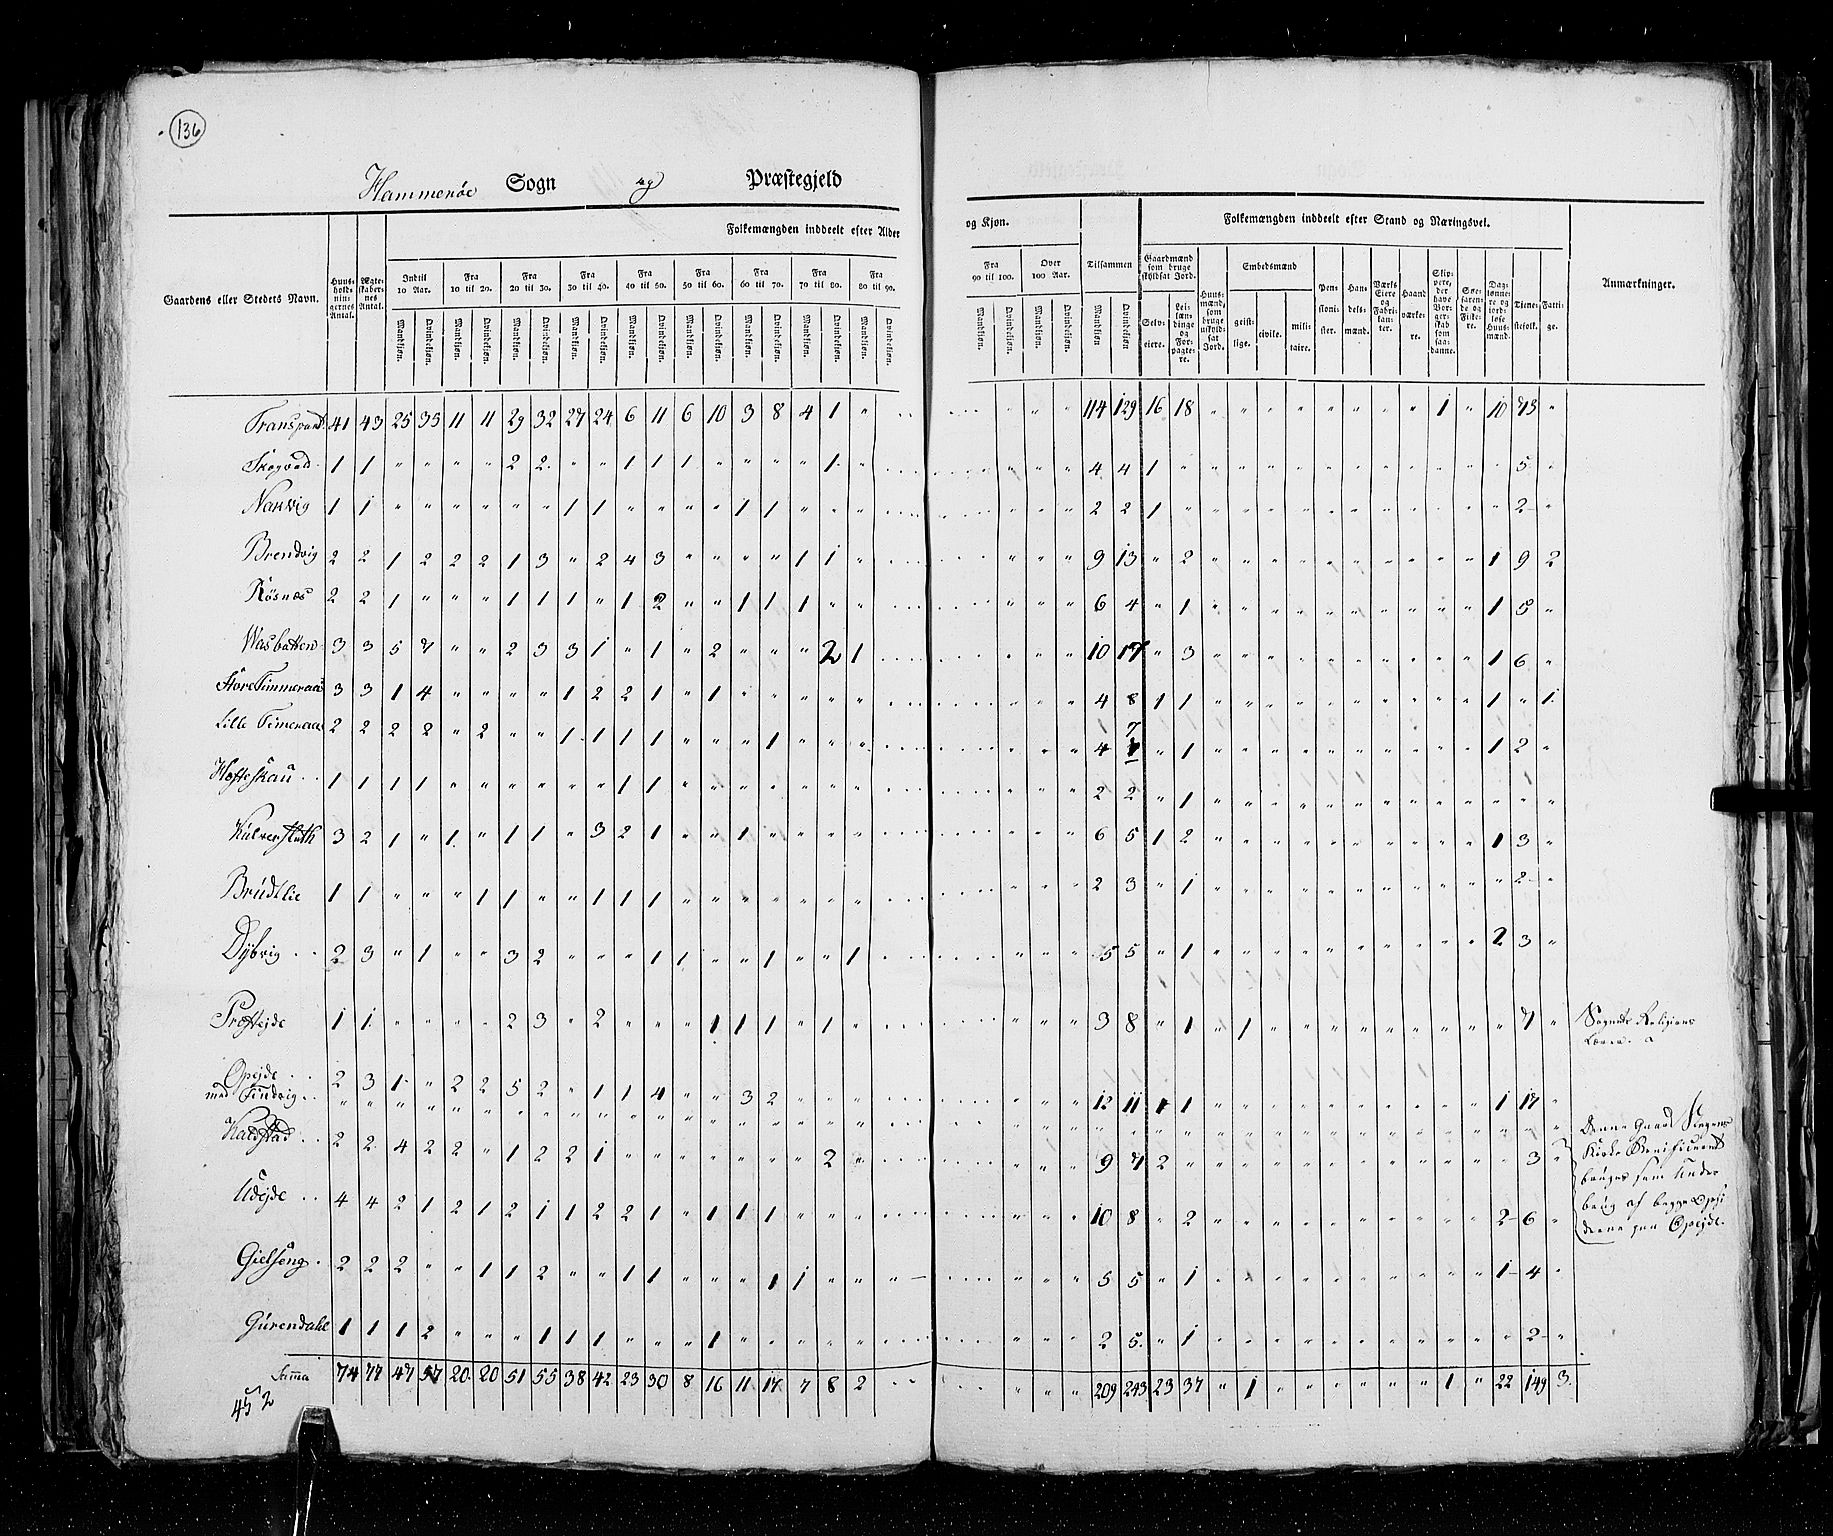 136
Hammerøe Sogn og Præstegjeld
Folkemængden inddeelt efter Alder og Kjøn.
Folkemængden inddeelt efter Stand og Næringsvei.
Gaardens eller Stedets Navn.
Huusholdningernes Antal.
Ægteskabernes Antal.
Indtil 10 Aar.
Fra 10 til 20.
Fra 20 til 30.
Fra 30 til 40.
Fra 40 til 50.
Fra 50 til 60.
Fra 60 til 70.
Fra 70 til 80.
Fra 80 til 90.
Fra 90 til 100.
Over 100 Aar.
Tilsammen
Mandkjøn. Qvindekjøn.
Gaardmænd som bruge skyldsat Jord.
Selveiere.
Leilændinge og Forpagtere.
Huusmænd, som bruge uskyldsat Jord.
Embedsmænd
geistlige. civile. militaire.
Pensionister.
Handelsmænd.
Værks Eiere og Fabrikanter.
Haandværkere.
Skippere, der have Borgerskab som saadanne.
Søefarende og Fiskere.
Daglønnere og jordløse Huusmænd.
Tjenestefolk.
Fattige.
Anmærkninger.
41 43 25 35 11 11 29 32 27 24 6 11 6 10 3 8 4 1 " 114 129 16 18 " " " " " " " " 1 " 10 73 "
1 1 " " " " 2 2 " " 1 1 1 " " " " 1 " 4 4 1 5
Narvig 1 1 " " " " " " 1 1 " " " " 1 1 " " " 2 2 1 2
Brendvig 2 2 1 2 2 2 1 3 " 2 4 3 " " " " 1 1 " 9 13 " 2 1 9 2
Røsnæs 2 2 1 " " " 1 1 1 " 1 2 " " 1 1 1 " " 6 4 " 1 1 5 "
Wasbotten 3 3 5 7 " " 2 3 3 1 " 1 " 2 " " " 2 1 10 17 " 3 1 6 "
Store Timmeraae 3 3 1 4 " " " " 1 2 2 1 " 1 " " " " " 4 8 1 1 1 " 1
Lille Timeraae 2 2 2 2 " 2 " " 1 1 1 1 " " " 1 " " " 4 7 " 1 1 2 "
1 1 1 1 " " " " " " 1 1 " " " " " " " 2 2 " 1
3 2 1 " 1 " 1 1 " 3 2 1 " " 1 " " " " 6 5 1 2 1 3 "
Brudtlie 1 1 " " " 1 1 " " 1 1 1 " " " " " " " 2 3 " 1 " 2 "
Dybvig 2 3 " 1 " " 3 2 " " " 1 1 " " 1 " " 1 5 5 " 1 2 3 "
1 1 " " " " 2 3 " 2 " " " 1 1 1 " 1 " 3 8 " 1 " 1 7 " Sognets Religions Lærer.
Opejde 2 3 1 " 2 2 5 2 " 1 1 4 " " 3 2 12 11 1 1 1 17 "
med Tindvig
Kaldstad 2 2 4 2 2 " 1 2 2 1 " " " " " " " 2 " 9 7 2 3 "
Denne Gaard Stegens
Kirke Benificeret
bruges som Under
brug af begge Opsi
derne paa Opejde.
Udejde 4 4 2 1 2 1 2 1 1 2 2 1 " 1 1 1 " " " 10 8 " 2 2 6 "
Gielseng 2 2 2 " " 1 1 2 " " 1 1 " " " 1 1 " " 5 5 " 1 1 4 "
Gurendahl 1 1 1 2 " " " 1 1 1 " " " 1 " " " " " 2 5 " 1 " 2 "
Summa 74 77 47 57 20 20 51 55 38 42 23 30 8 16 11 17 7 8 2 209 243 23 37 " 1 " " " " " " 1 " 22 149 3
452